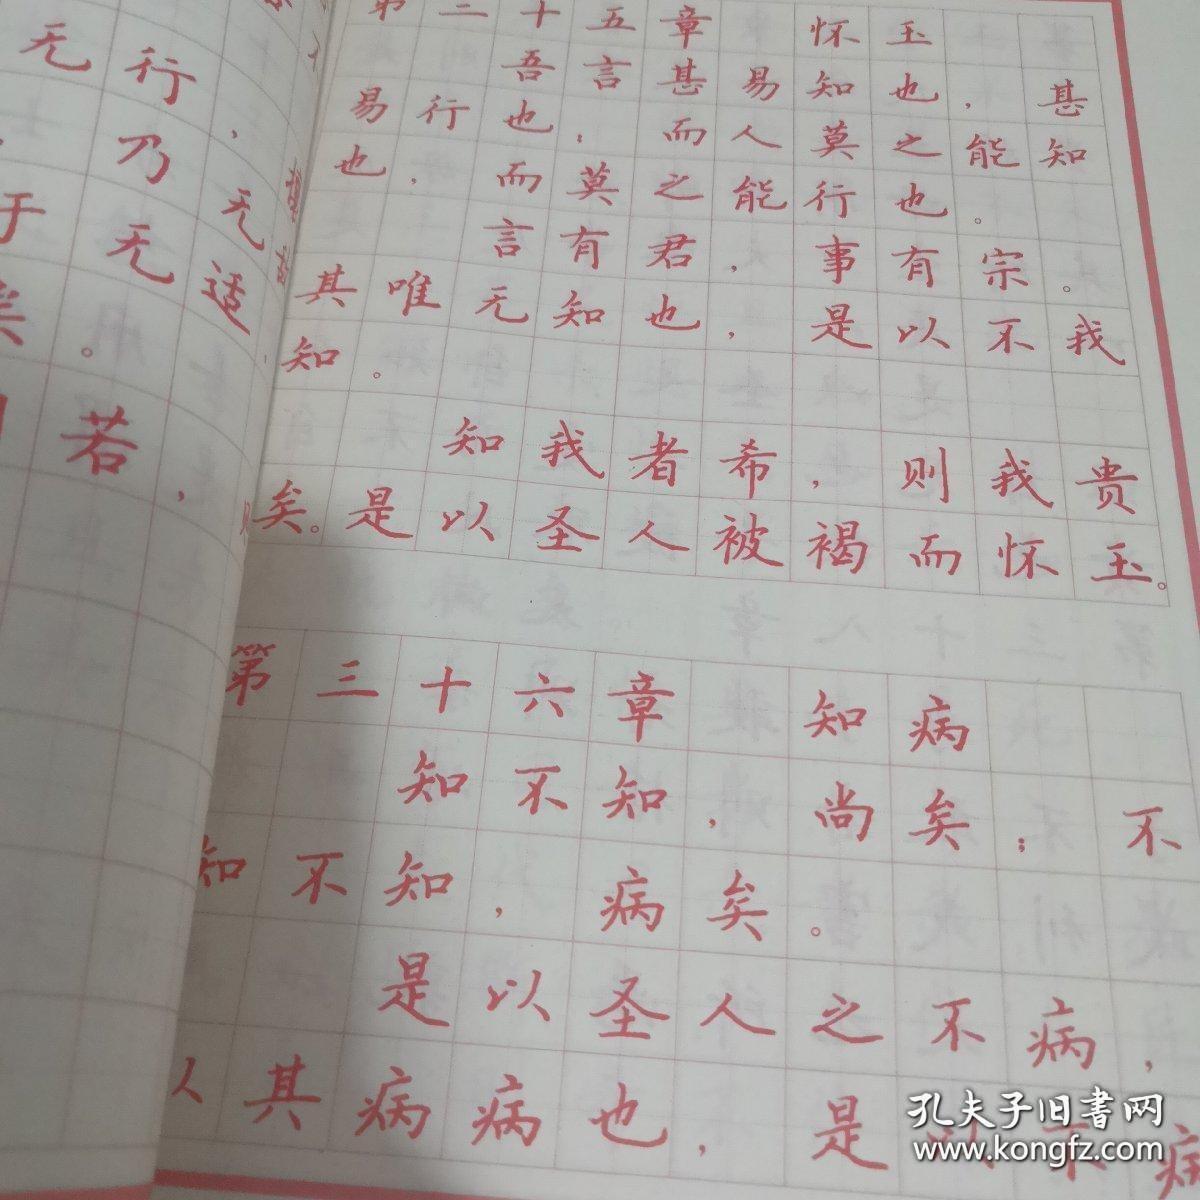 无行，
乃无
于无适
矣。
若，
第三十五章 怀玉
吾言甚易知也，甚
易行也；而人莫之能知
也，而莫之能行也。
言有君，事有宗。
其唯无知也，是以不我
知。
知我者希，则我贵
矣。是以圣人被褐而怀玉。
第三十六章 知病
知不知，尚矣；不
知不知，病矣。
是以圣人之不病，
以其病病也，是以不病
孔夫子旧书网
www.kongfz.com